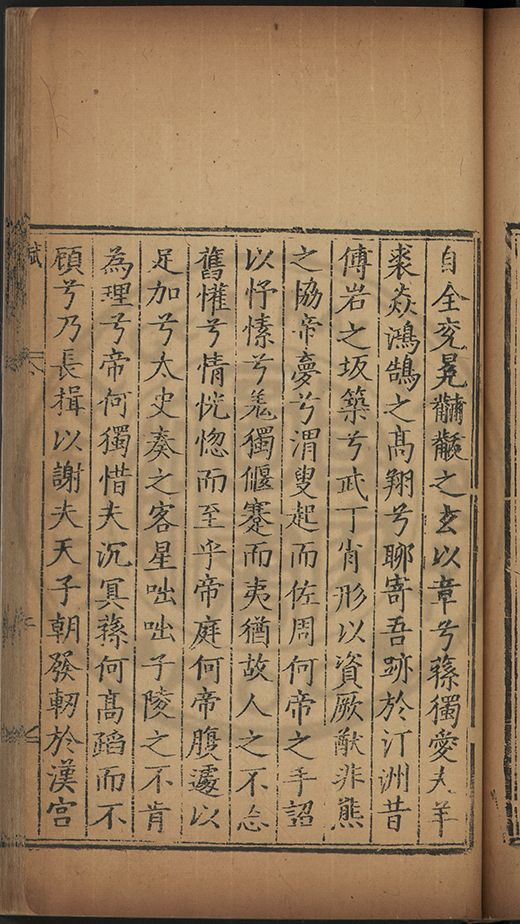 自全兖冕黼黻之玄以章兮蓀獨愛夫羊
裘焱鴻鵠之高翔兮聊寄吾跡於汀洲昔
傅岩之坂築兮武丁肖形以資厥猷非熊
之協帝夢兮渭叟起而佐周何帝之手詔
以怀愫兮羗獨偃蹇而夷猶故人之不忘
舊懽兮情恍惚而至乎帝庭何帝腹遽以
足加兮太史奏之客星咄咄子陵之不肯
為理兮帝何獨惜夫沉冥蓀何高蹈而不
顧兮乃長揖以謝夫天子朝發軔於漢宮
賦